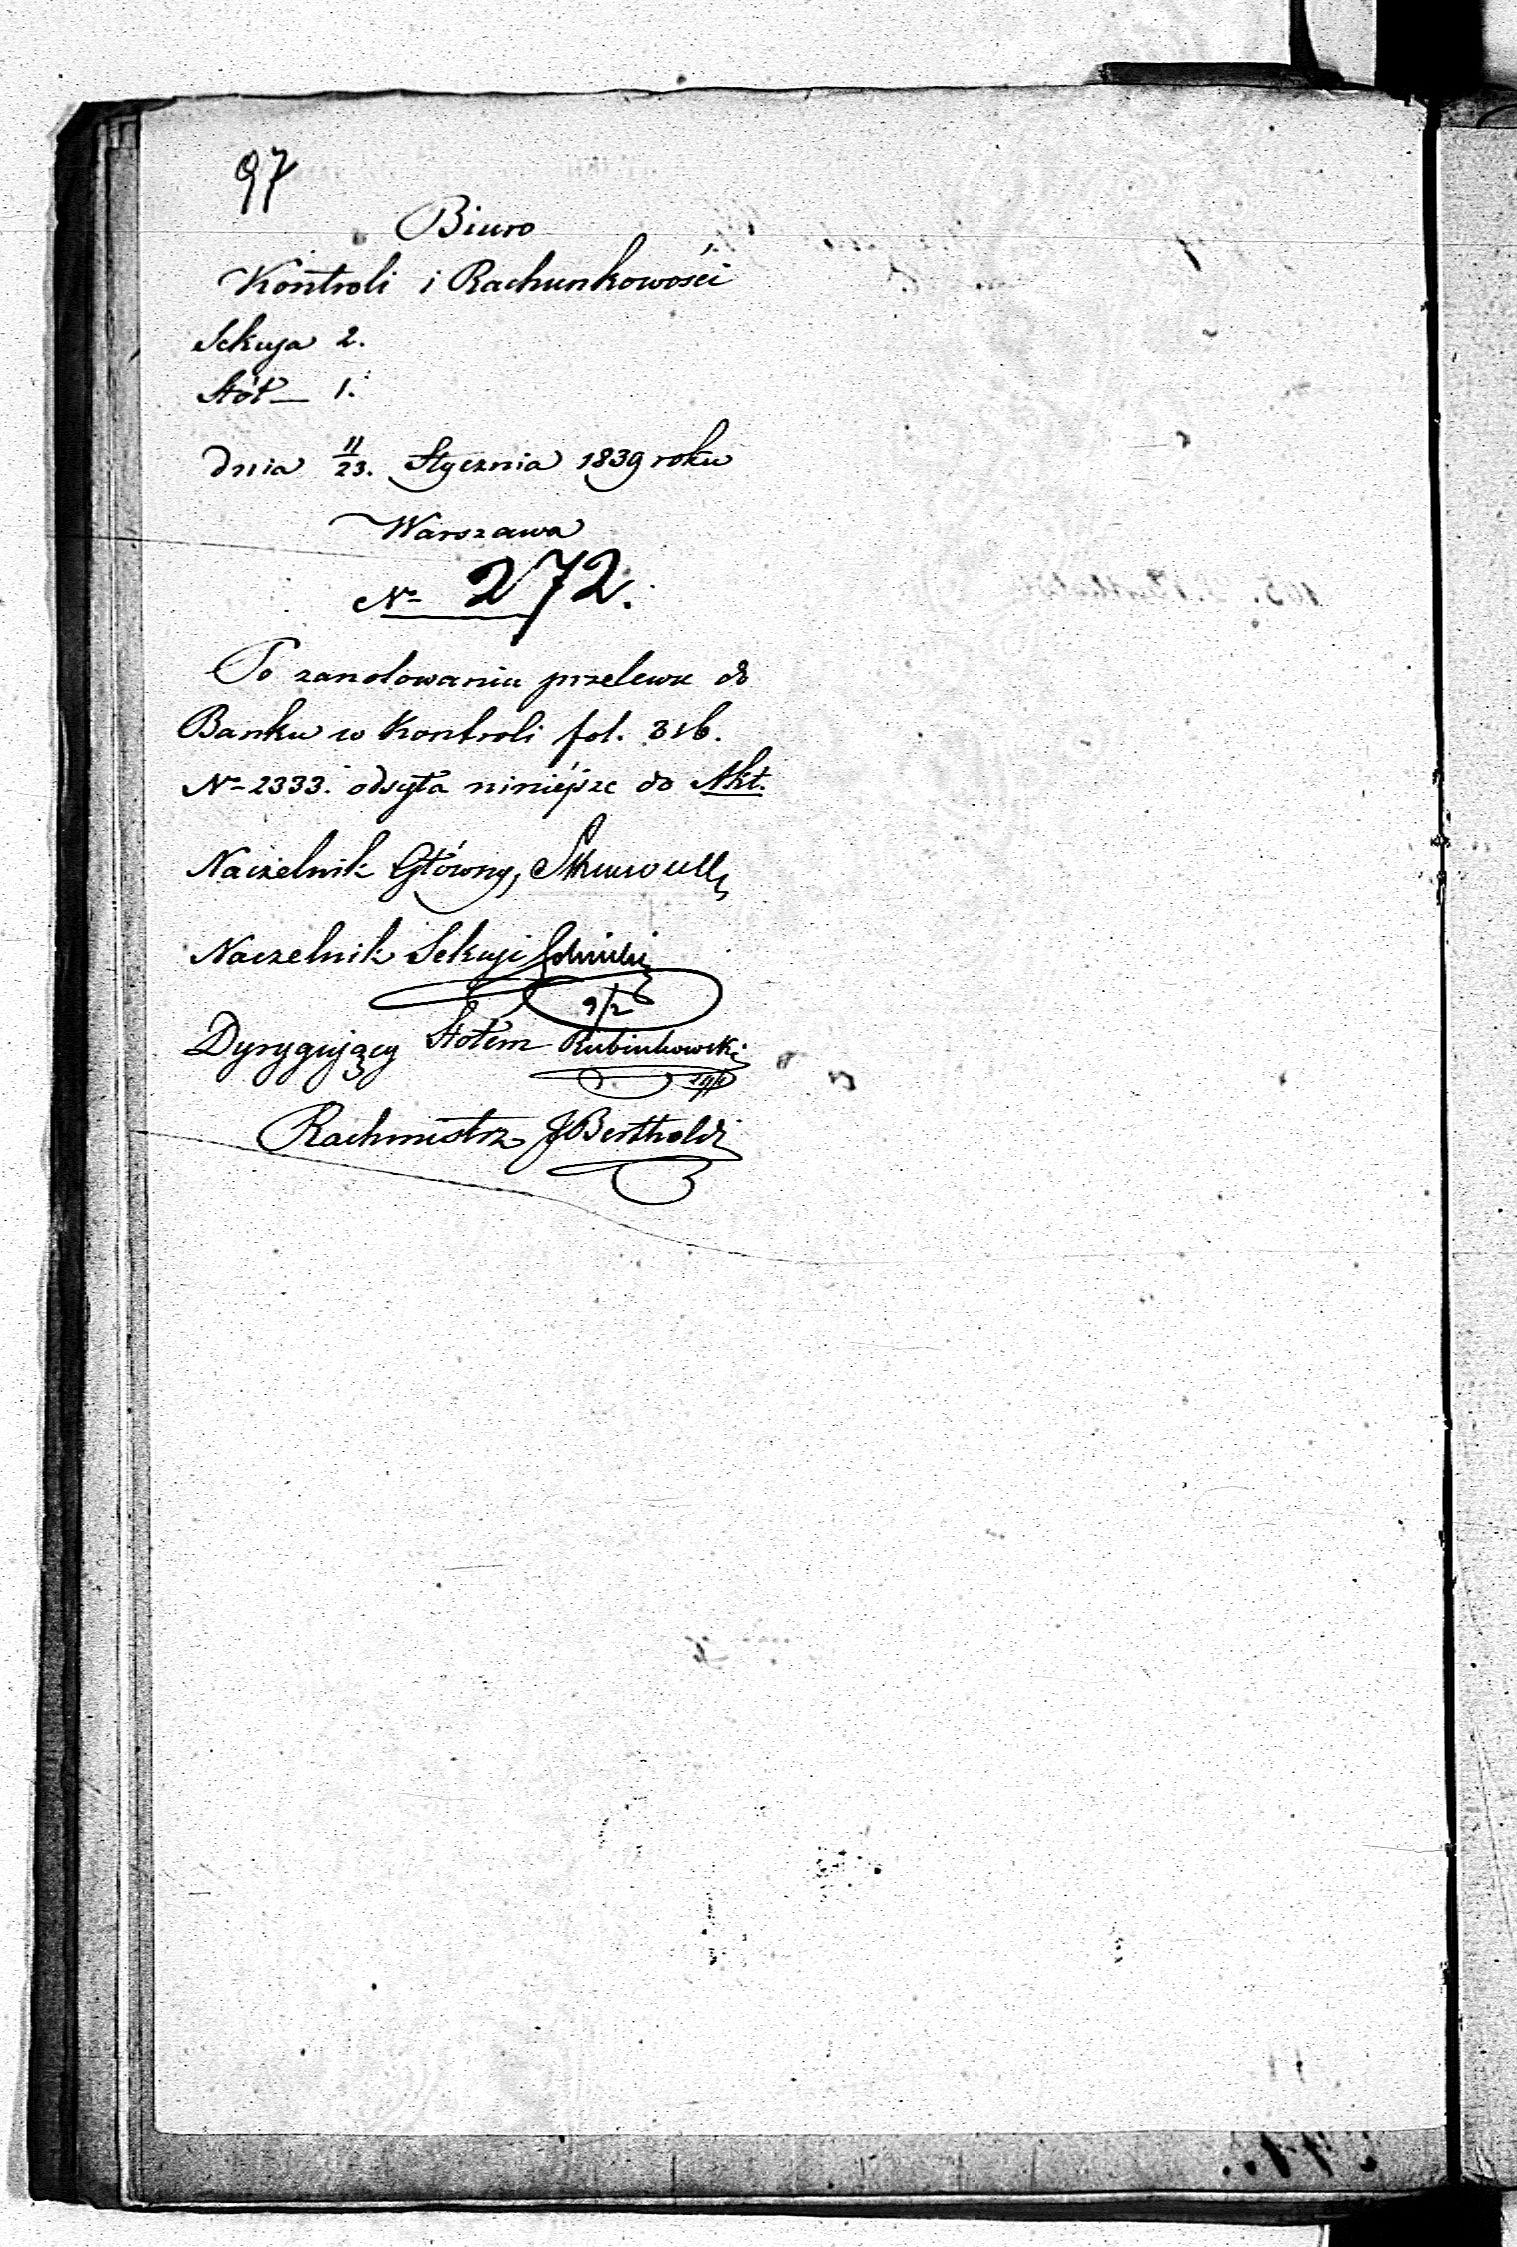 97
Biuro
Kontroli i Rachunkowości
Sekcya 2.
Stół — 1.
dnia 11/23. Stycznia 1839 roku
Warszawa
No 272.
Po zanotowaniu przelewu do
Banku w Kontroli fol. 316.
No 2333. odsyła niniéjsze do Akt.
Naczelnik Główny,
Naczelnik Sekcyi
9/2
Dyrygujący Stołem Rubinkowski
Rachmistrz J Bertholdi